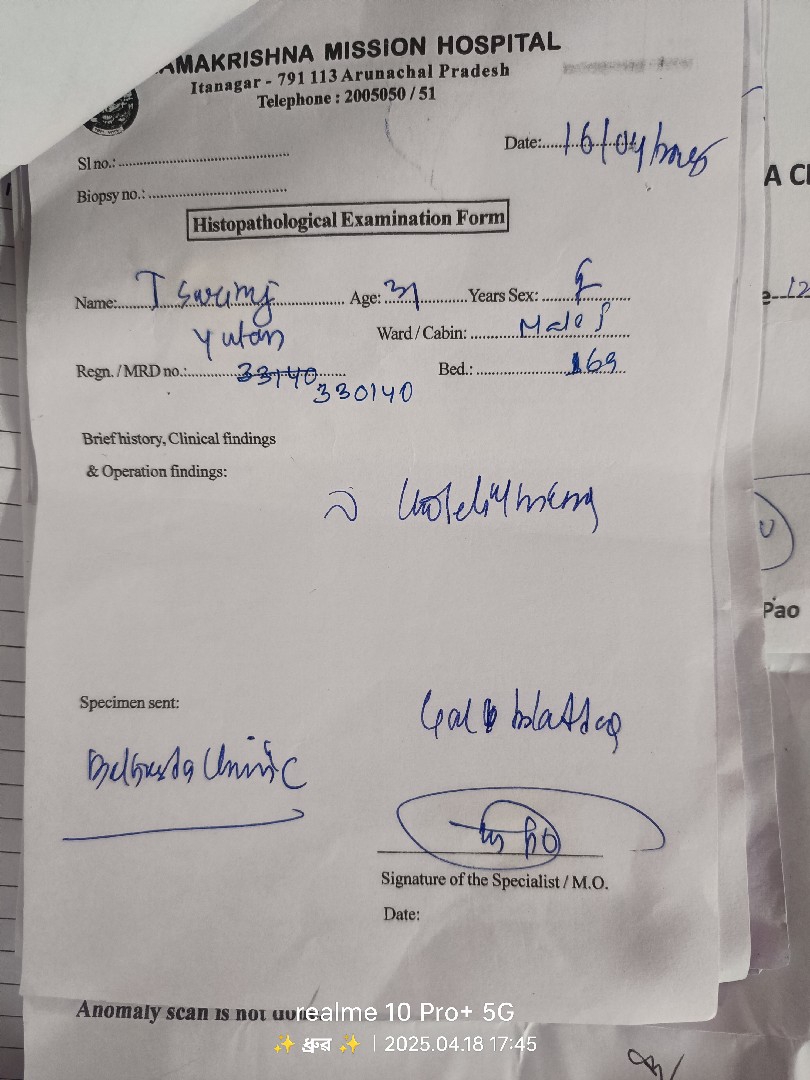 AMAKRISHNA MISSION HOSPITAL
Itanagar - 791 113 Arunachal Pradesh
Telephone : 2005050 / 51
Date:......16/04/2025
Sl no.: ..............................
Biopsy no.: ..............................
Histopathological Examination Form
Name:.....T Swamy..... Age: 31 .....Years Sex: ..... F
Yutan Ward / Cabin: .....Male S
Regn. / MRD no.:.....33140..... Bed.: ..... 169
330140
Brief history, Clinical findings
& Operation findings:
Specimen sent:
Gall bladder
Clinic
Signature of the Specialist / M.O.
Date:
Anomaly scan is not
realme 10 Pro+ 5G
✨ ধ্রুব ✨ | 2025.04.18 17:45
A CI
12
Pao